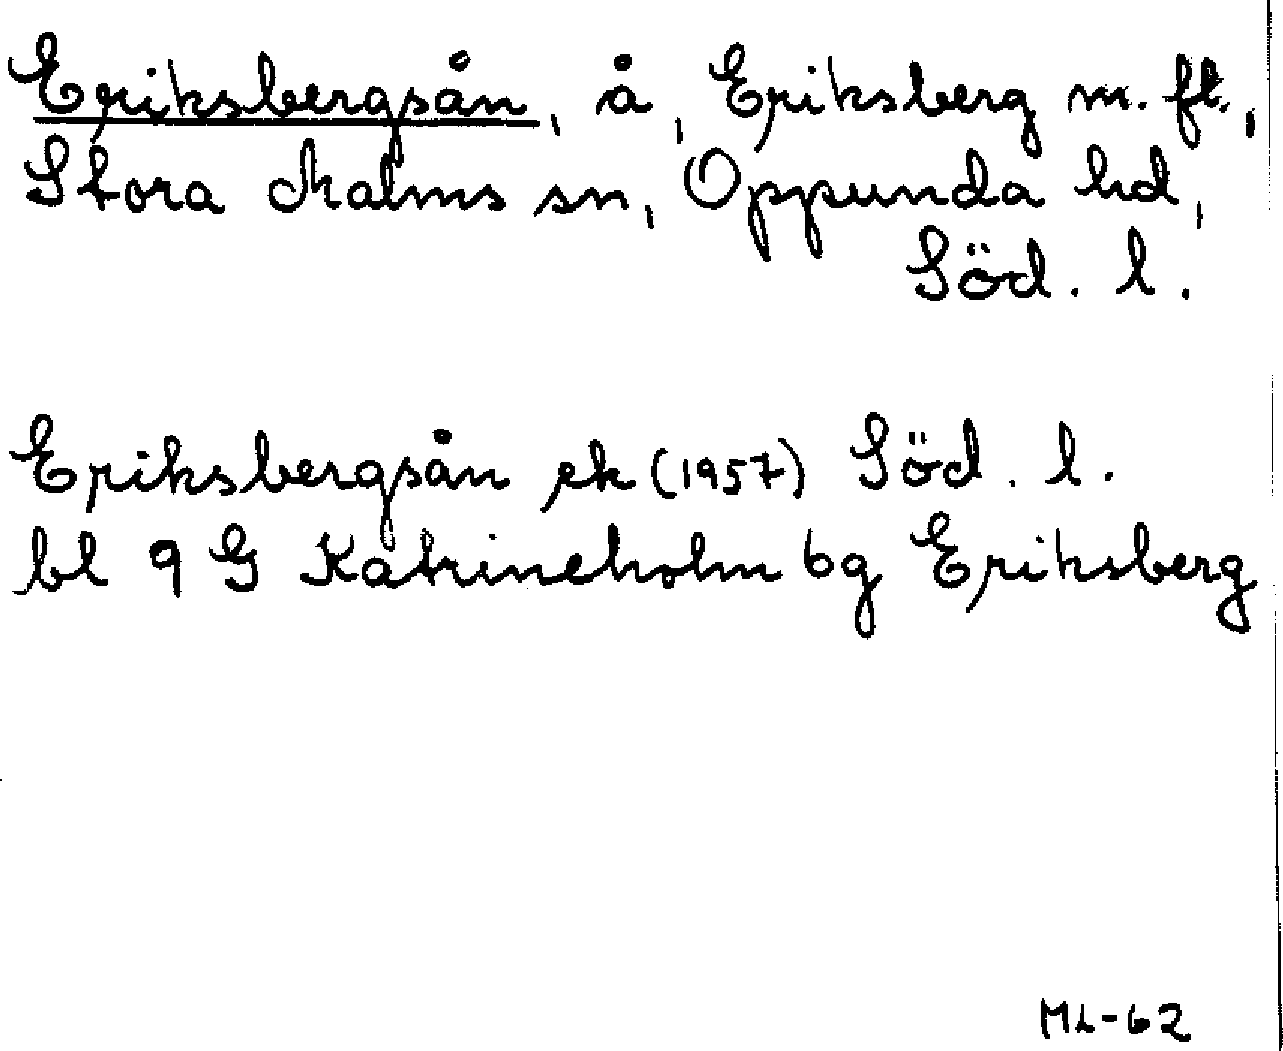 Eriksbergsån, å, Eriksberg m. fl.,
Stora Malms sn, Oppunda hd,
Söd. l.
Eriksbergsån ek (1957) Söd. l.
bl 9 G Katrineholm 6g Eriksberg
ML-62